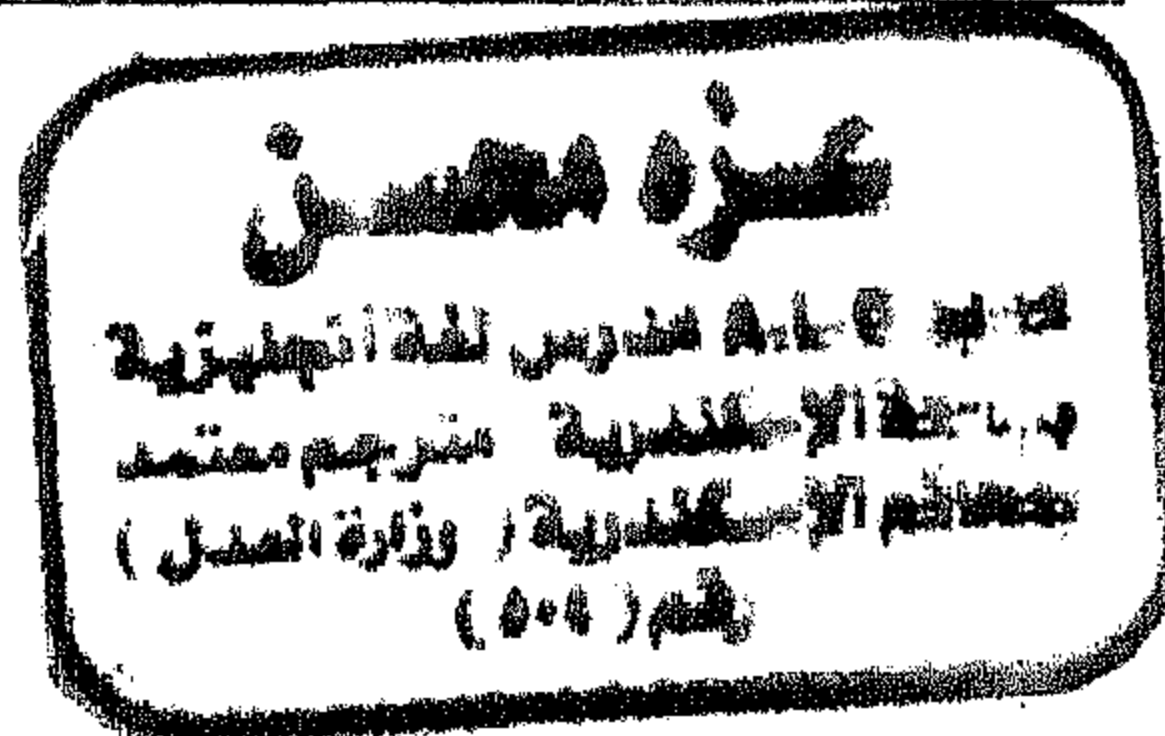 عزه محسن
A.L.C مدرس لغة انجليزية
الإسكندرية مترجم معتمد
الإسكندرية ( وزارة العدل )
رقم ( )